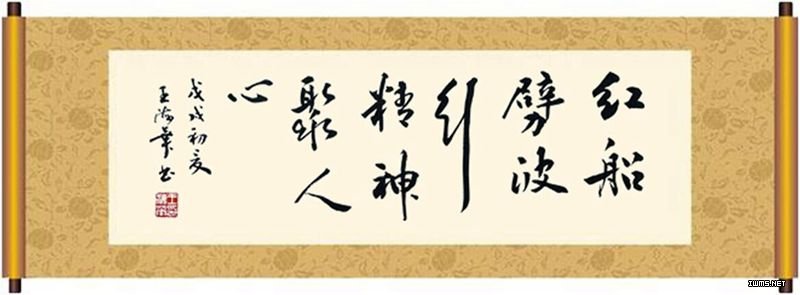 红船
劈波
行
精神
聚人
心
戊戌初夏
王海業书
IWMS.NET